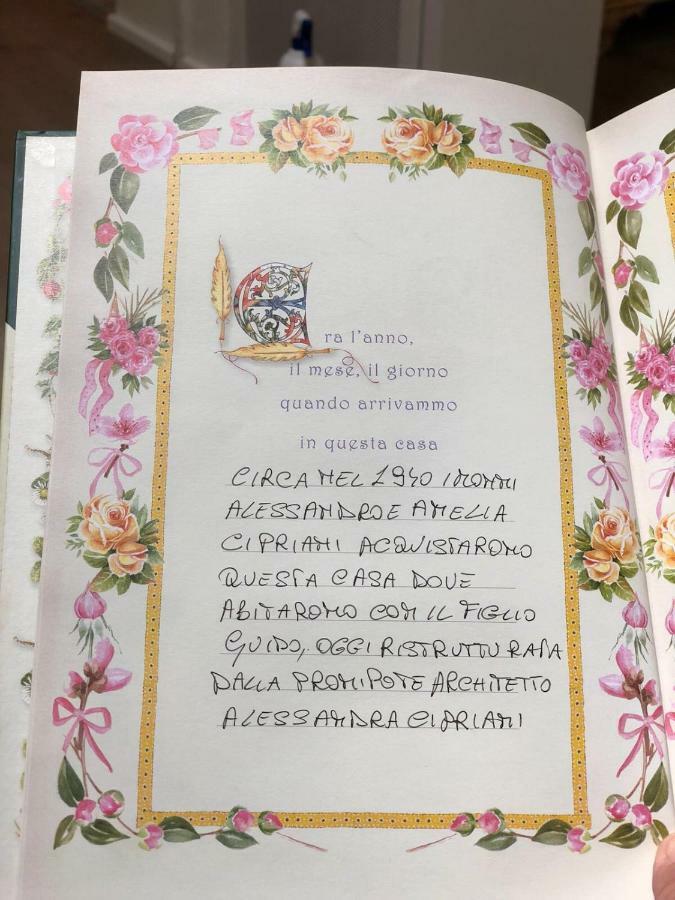 Era l'anno,
il mese, il giorno
quando arrivammo
in questa casa
CIRCA NEL 1940 I NONNI
ALESSANDRO E AMELIA
CIPRIANI ACQUISTARONO
QUESTA CASA DOVE
ABITARONO CON IL FIGLIO
GUIDO, OGGI RISTRUTTURATA
DALLA PRONIPOTE ARCHITETTO
ALESSANDRA CIPRIANI